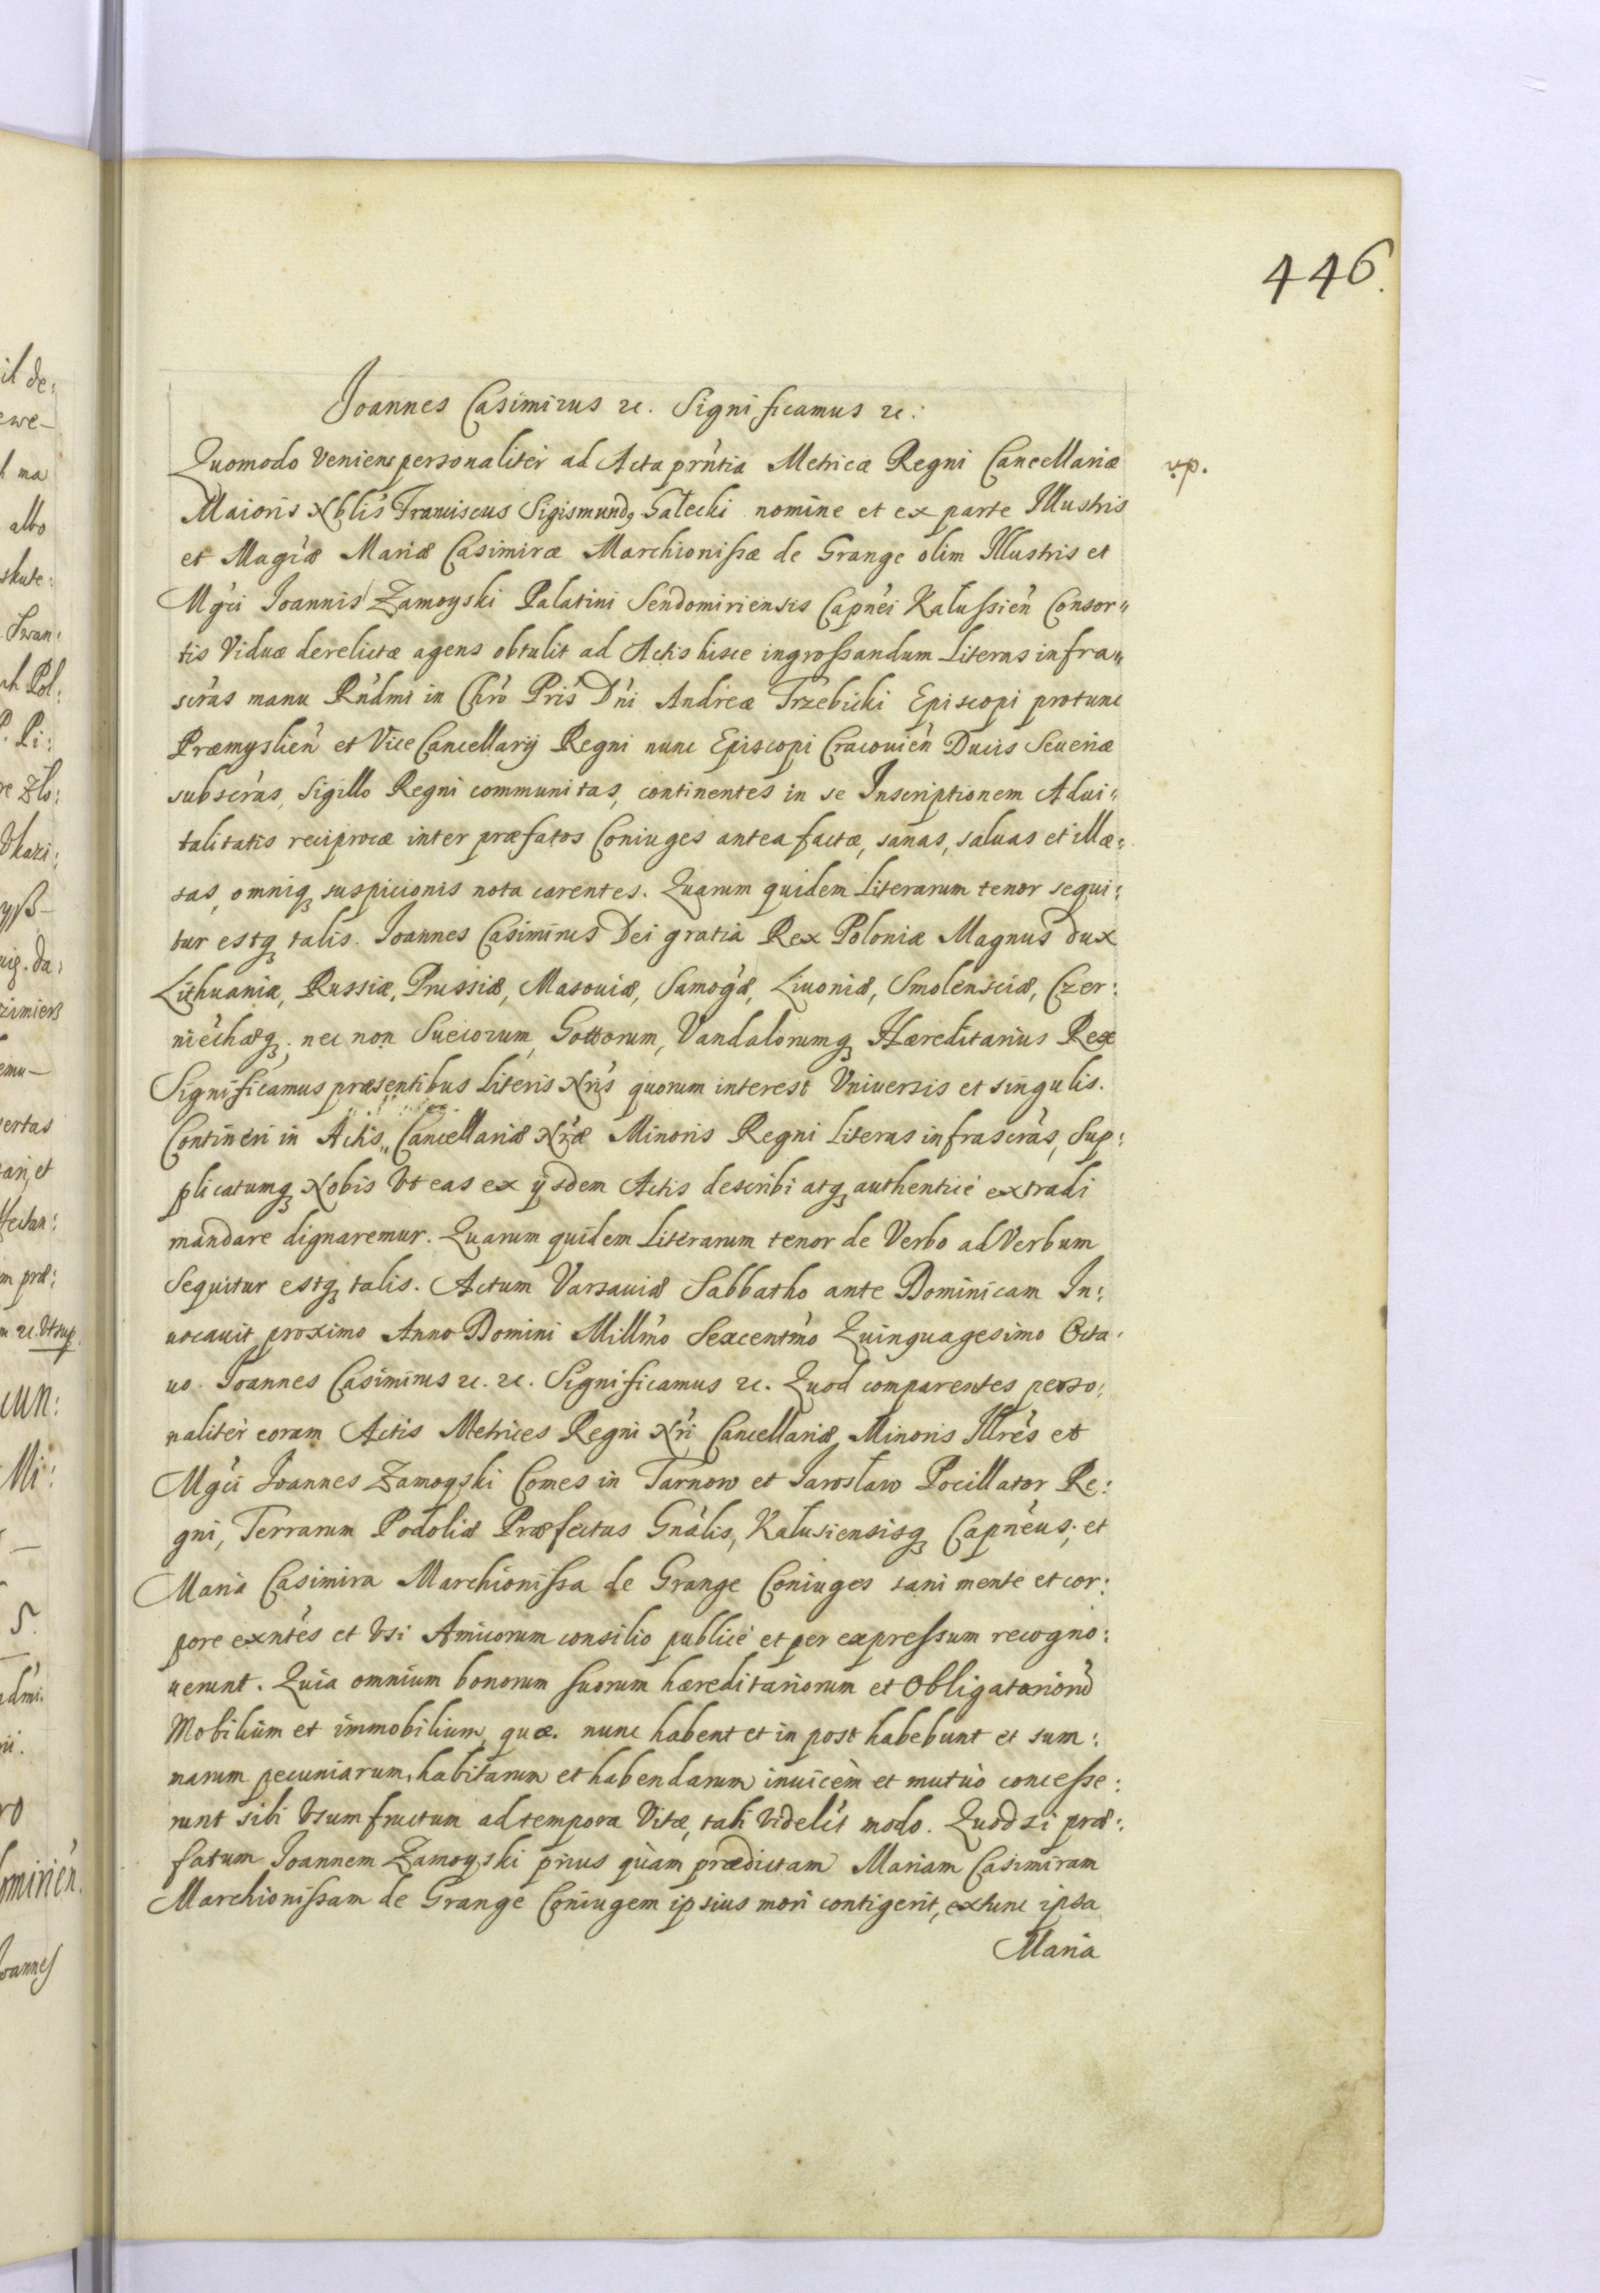 446.
Joannes Casimirus etc. Significamus etc:
Quomodo Veniens personaliter ad Acta prntia Metricæ Regni Cancellariæ
Maioris Nblis Franciscus Sigismundq Gałecki nomine et ex parte Illustris
et Magcæ Mariæ Casimiræ Marchionissæ de Grange olim Illustris et
Mgci Joannis Zamoyski Palatini Sendomiriensis Capnei Kałussien Consor„
tis Viduæ derelictæ agens obtulit ad Actis hisce ingrossandum Literas infra„
scras manu Rndmi in Chro Pris Dni Andreæ Trzebicki Episcopi protunc
Præmyslien et Vice Cancellarij Regni nunc Episcopi Cracouien Ducis Seueriæ
subscras, Sigillo Regni communitas, continentes in se Inscriptionem Adui„
talitatis reciprocæ inter præfatos Coniuges antea factæ, sanas, saluas et illæ:
sas, omniq suspicionis nota carentes. Quarum quidem Literarum tenor sequi:
tur estq talis. Joannes Casimirus Dei gratia Rex Poloniæ Magnus Dux
Lithuaniæ, Russiæ, Prussiæ, Masouiæ, Samogæ, Liuoniæ, Smolensciæ, Czer:
niechæq; nec non Suecorum, Gottorum, Vandalorumq Hæreditarius Rex
Significamus præsentibus Literis Nris quorum interest Vniuersis et singulis.
Contineri in Actis„ Cancellariæ Nræ Minoris Regni Literas infrascras, Sup:
plicatumq Nobis Vt eas ex ijsdem Actis describi atq authenticè extradi
mandare dignaremur. Quarum quidem Literarum tenor de Verbo ad Verbum
Sequitur estq talis. Actum Varsauiæ Sabbatho ante Dominicam In:
uocauit proximo Anno Domini Millmo Sexcentmo Quinquagesimo Octa:
uo. Joannes Casimirus etc. etc. Significamus etc. Quod comparentes perso:
naliter coram Actis Metrices Regni Nri Cancellariæ Minoris Illres et
Mgci Joannes Zamoyski Comes in Tarnow et Jarosław Pocillator Re:
gni, Terrarum Podoliæ Præfectus Gnalis, Kałusiensisq Capneus; et
Maria Casimira Marchionissa de Grange Coniuges sani mente et cor:
pore exntes et Vsi Amicorum consilio publicè et per expressum recogno:
uerunt. Quia omnium bonorum suorum hæreditariorum et Obligatoriorum
Mobilium et immobilium, quæ. nunc habent et in post habebunt et sum:
marum pecuniarum, habitarum et habendarum inuicèm et mutùo concesse:
runt sibi Vsumfructum ad tempora Vitæ, tali Videlit modo. Quod si præ:
fatum Joannem Zamoyski prius quàm prædictam Mariam Casimiram
Marchionissam de Grange Coniugem ipsius mori contigerit, extunc ipsa
Maria